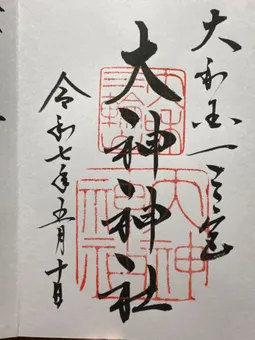 大和国一之宮
大神神社
令和七年五月十日
三輪明神
大神神社